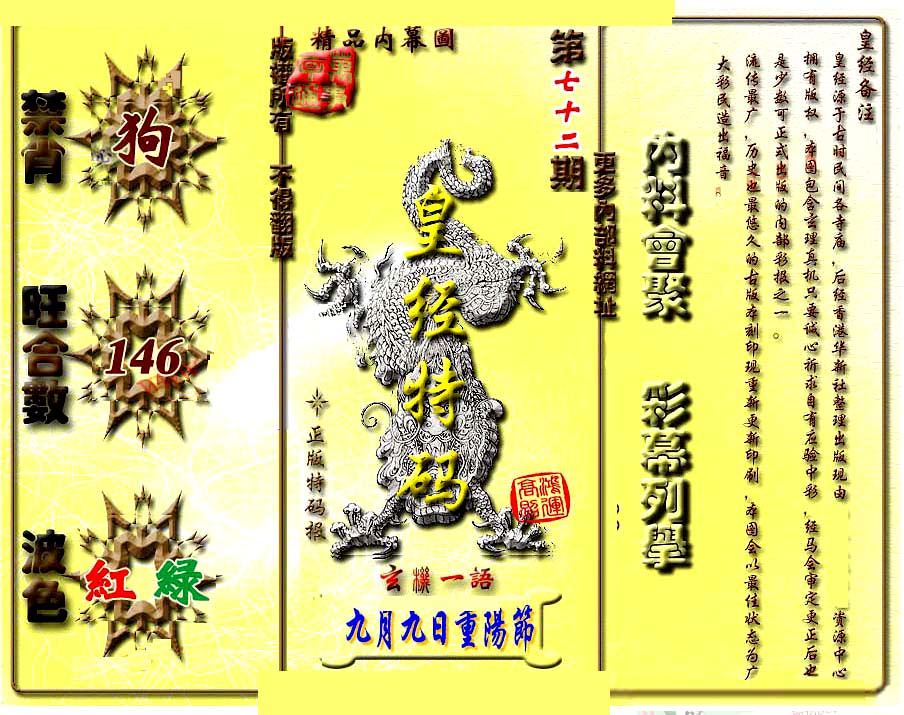 皇经备注
皇经源于古时民间各寺庙，后经香港华新社整理出版现由 资源中心
拥有版权，本图包含玄理真机只要诚心祈求自有应验中彩，经马会审定更正后也
是少数可正式出版的内部彩报之一。
流传最广，历史也最悠久的古版本刻印现重新更新印刷，本图会以最佳状态为广
大彩民造出福音
內料會聚
彩幕列舉
更多內部料網址
第七十二期
精品内幕圖
版權所有 不得翻版
皇经特码
正版特码报
鸿運
高照
玄機一語
九月九日重陽節
禁肖
狗
旺合數
146
波色
紅 綠